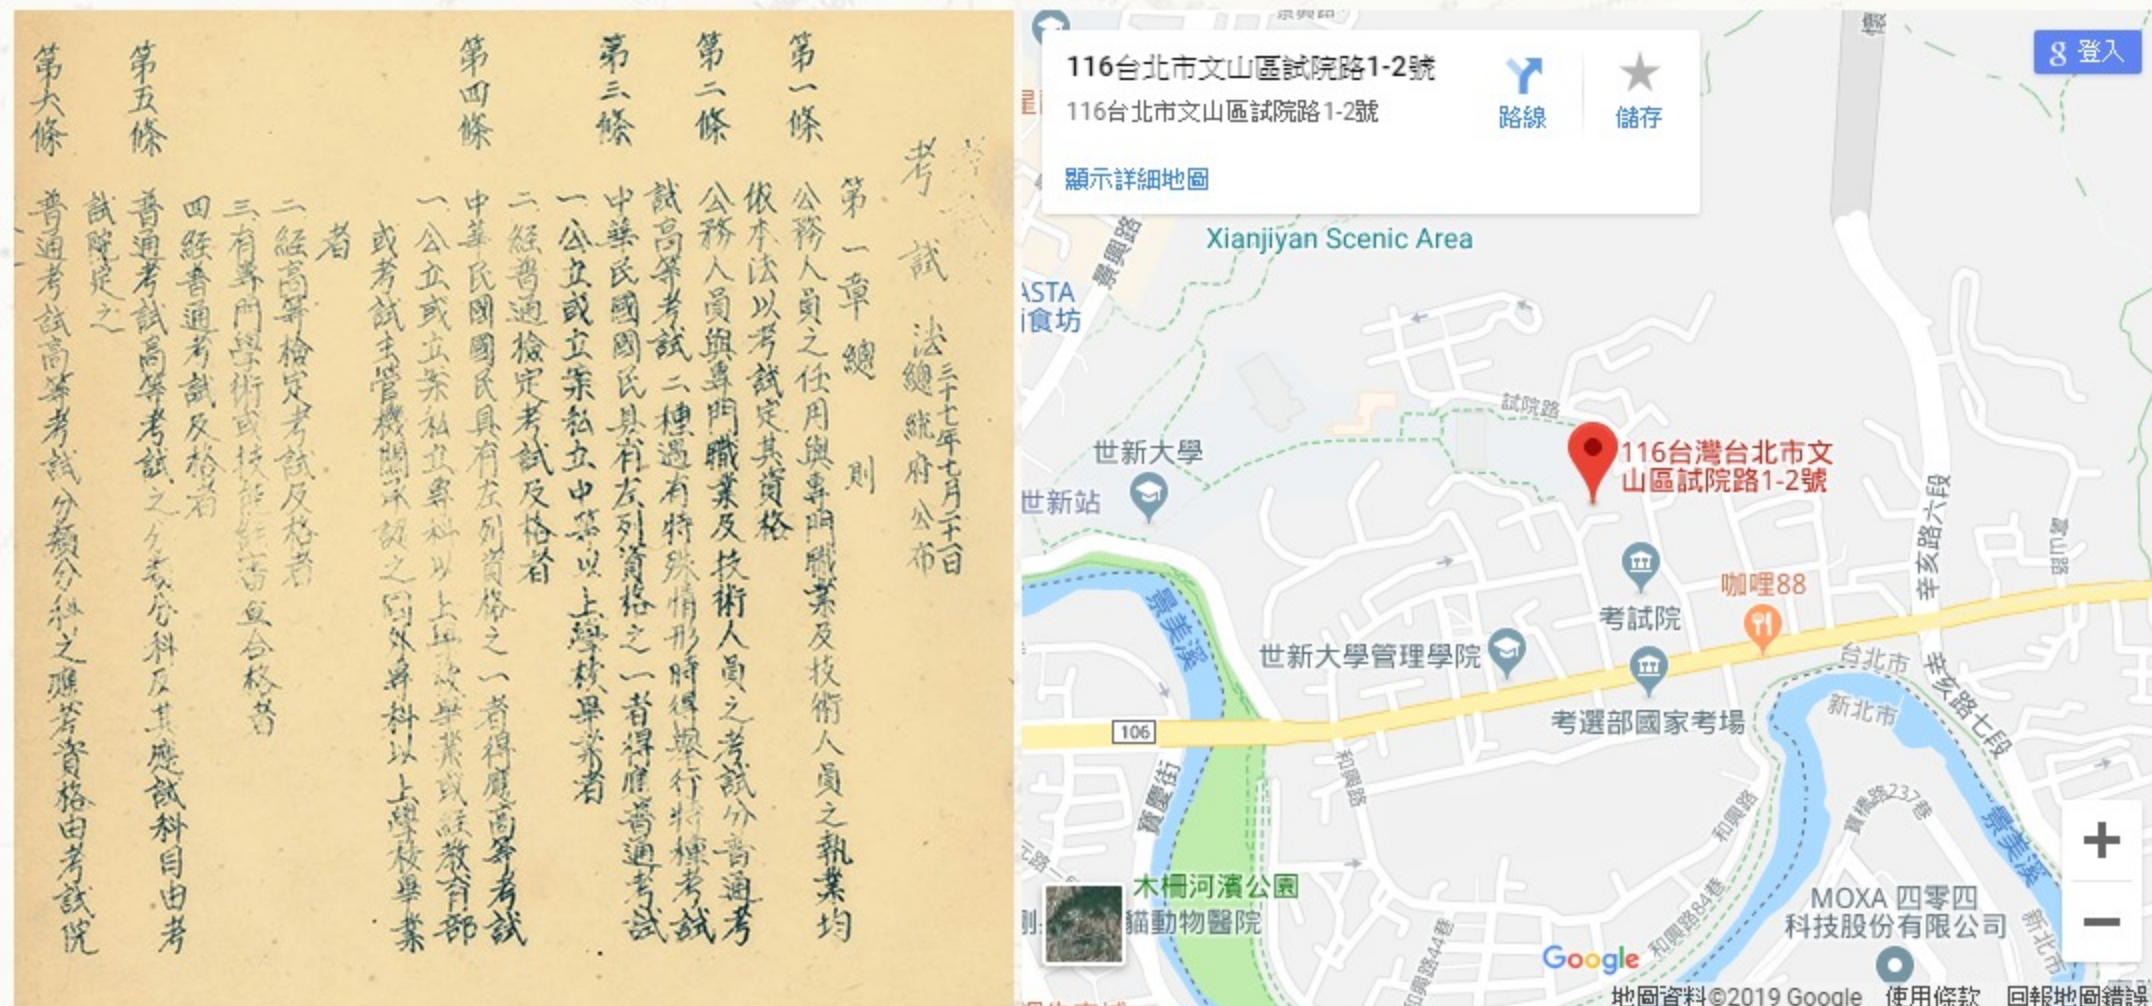 考試法
三十七年七月二十一日
總統府公布
第一章 總則
第一條 公務人員之任用與專門職業及技術人員之執業均
依本法以考試定其資格
第二條 公務人員與專門職業及技術人員之考試分普通考
試高等考試二種遇有特殊情形時得舉行特種考試
第三條 中華民國國民具有左列資格之一者得應普通考試
一公立或立案私立中等以上學校畢業者
二經普通檢定考試及格者
第四條 中華民國國民具有左列資格之一者得應高等考試
一公立或立案私立專科以上學校畢業或經教育部
或考試主管機關承認之國外專科以上學校畢業
者
二經高等檢定考試及格者
三有專門學術或技能經審查合格者
四經普通考試及格者
第五條 普通考試高等考試之分類分科及其應試科目由考
試院定之
第六條 普通考試高等考試分類分科之應考資格由考試院
116台北市文山區試院路1-2號
116台北市文山區試院路1-2號
路線
儲存
顯示詳細地圖
登入
Xianjiyan Scenic Area
景興路
試院路
116台灣台北市文
山區試院路1-2號
世新大學
世新站
辛亥路六段
景美溪
考試院
咖哩88
世新大學管理學院
台北市
考選部國家考場
新北市
辛亥路七段
106
和興路
寶慶街
和興路
寶橋路237巷
景美溪
木柵河濱公園
貓動物醫院
MOXA 四零四
科技股份有限公司
和興路84巷
和興路44巷
新北市
Google
地圖資料©2019 Google
使用條款
回報地圖錯誤